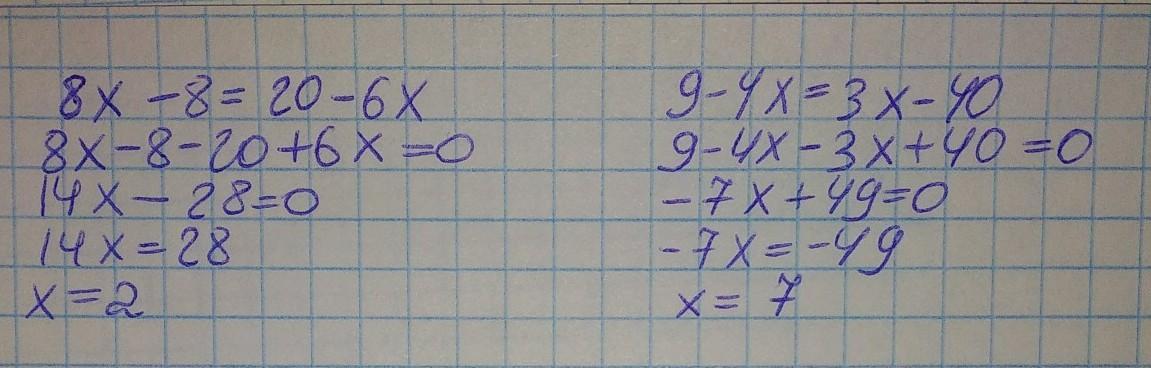 8x - 8 = 20 - 6x
8x - 8 - 20 + 6x = 0
14x - 28 = 0
14x = 28
x = 2
9 - 4x = 3x - 40
9 - 4x - 3x + 40 = 0
-7x + 49 = 0
-7x = -49
x = 7